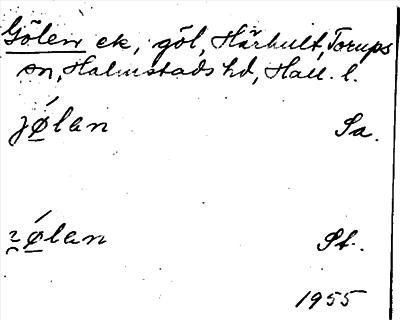 Gölen ek, göl, Härhult, Torups
sn, Halmstads hd, Hall. l.
jǿlan Sa.
ɀǿlan St.
1955